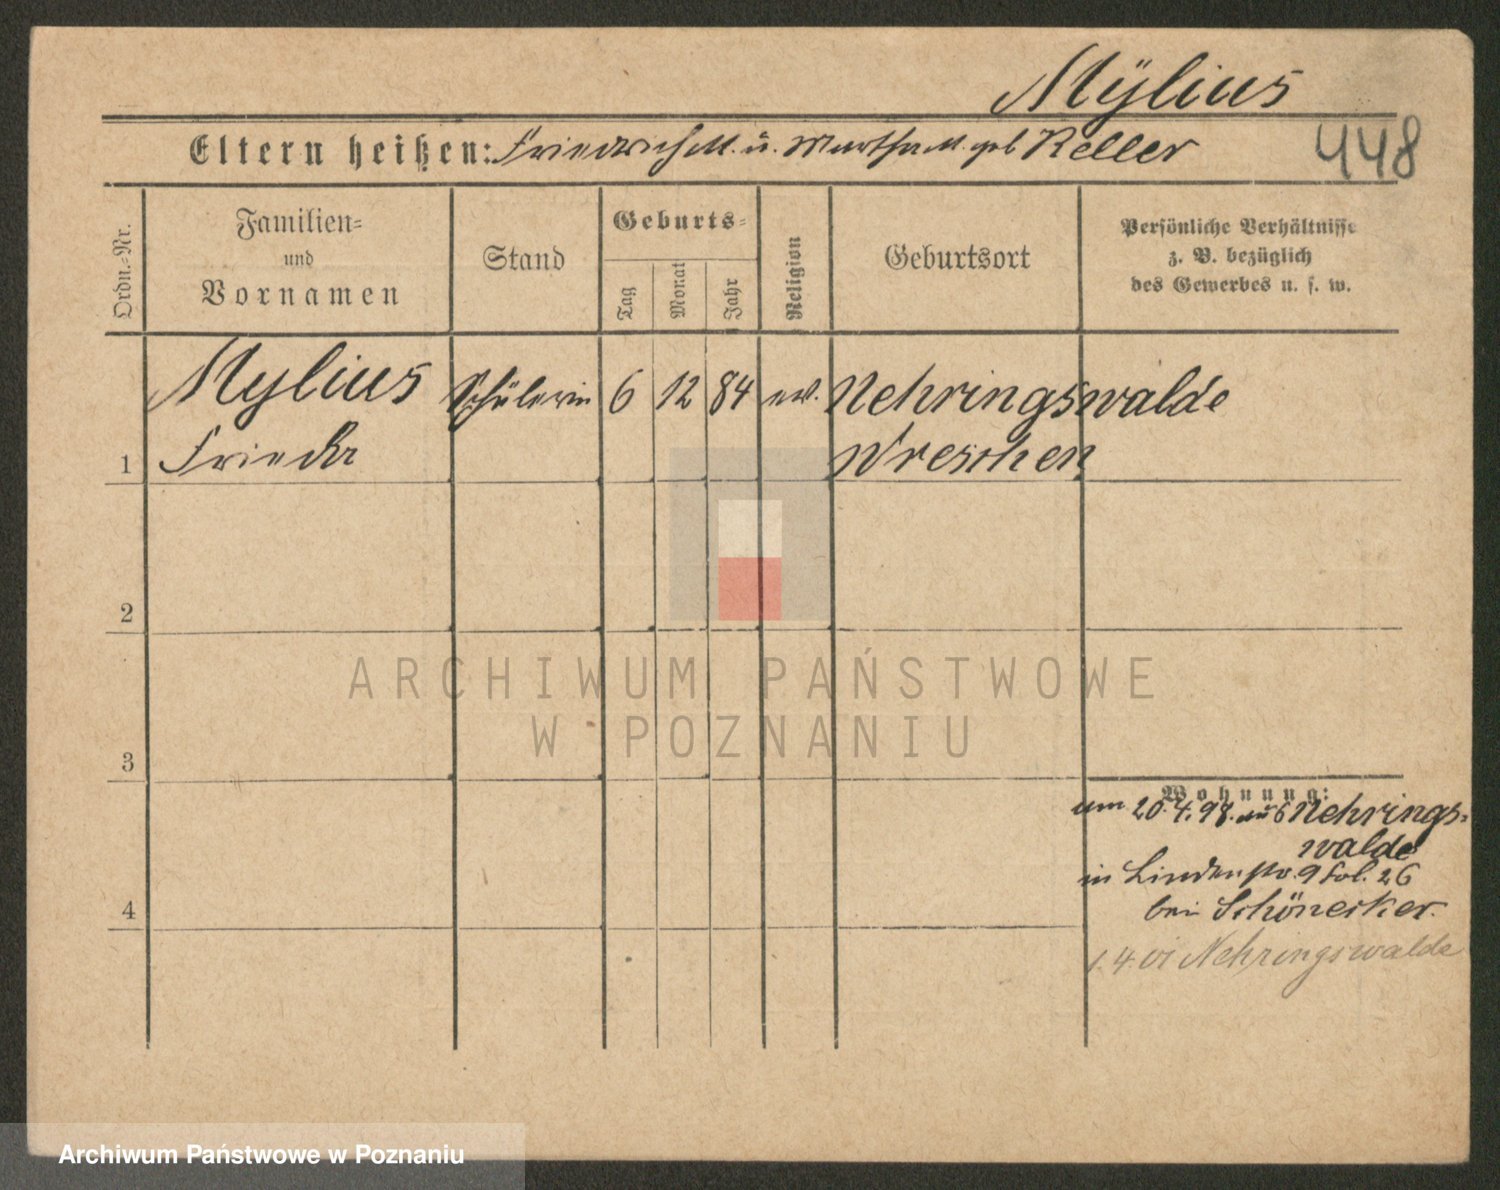 Mÿlius
Eltern heißen: Friedrich M. u. Martha M. geb Keller
448
Ordn.-Nr.
Familien-
und
Vornamen
Stand
Geburts-
Tag
Monat
Jahr
Religion
Geburtsort
Persönliche Verhältnisse
z. B. bezüglich
des Gewerbes u. s. w.
1
Mylius
Frieda
Schülerin
6
12
84
ev.
Nehringswalde
Wreschen
2
3
4
Wohnung:
am 20.4.98. aus Nehrings-
walde
in Lindenstr. 9 fol. 26
bei Schönecker.
1.4.01 Nehringswalde
ARCHIWUM PAŃSTWOWE
W POZNANIU
Archiwum Państwowe w Poznaniu